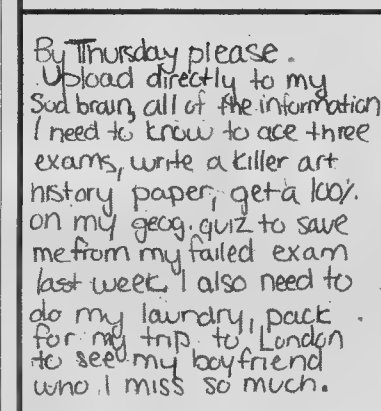 By Thursday please.
Upload directly to my
Sud brain, all of the information
I need to know to ace three
exams, write a killer art
history paper, get a 100%
on my geog. quiz to save
me from my failed exam
last week. I also need to
do my laundry, pack
for my trip to London
to see my boyfriend
who I miss so much.